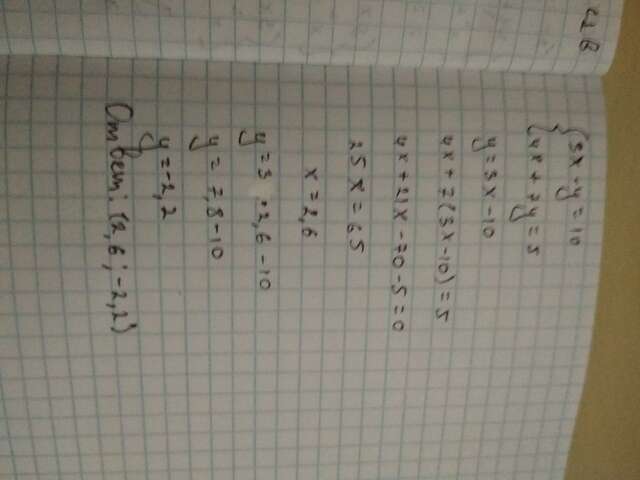 {3x - y = 10
{4x + 7y = 5
y = 3x - 10
4x + 7(3x - 10) = 5
4x + 21x - 70 - 5 = 0
25x = 65
x = 2,6
y = 3 · 2,6 - 10
y = 7,8 - 10
y = -2,2
Ответ: (2,6 ; -2,2)